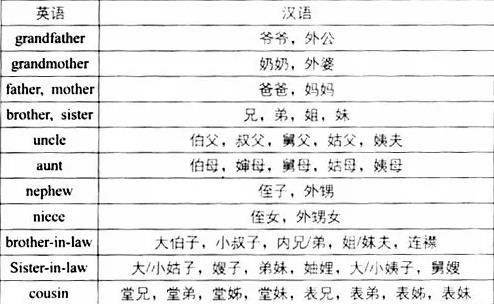 英语 汉语
grandfather 爷爷，外公
grandmother 奶奶，外婆
father, mother 爸爸，妈妈
brother, sister 兄，弟，姐，妹
uncle 伯父，叔父，舅父，姑父，姨夫
aunt 伯母，婶母，舅母，姑母，姨母
nephew 侄子，外甥
niece 侄女，外甥女
brother-in-law 大伯子，小叔子，内兄/弟，姐/妹夫，连襟
Sister-in-law 大/小姑子，嫂子，弟妹，妯娌，大/小姨子，舅嫂
cousin 堂兄，堂弟，堂姊，堂妹，表兄，表弟，表姊，表妹